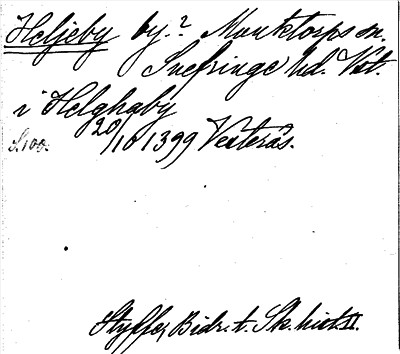 Heljeby by.? Munktorps sn.
Snefringe hd. Vstl.
i Helghaby
20/10 1399 Vesterås.
S. 100.
Styffe, Bidr. t. Sk. hist. II.